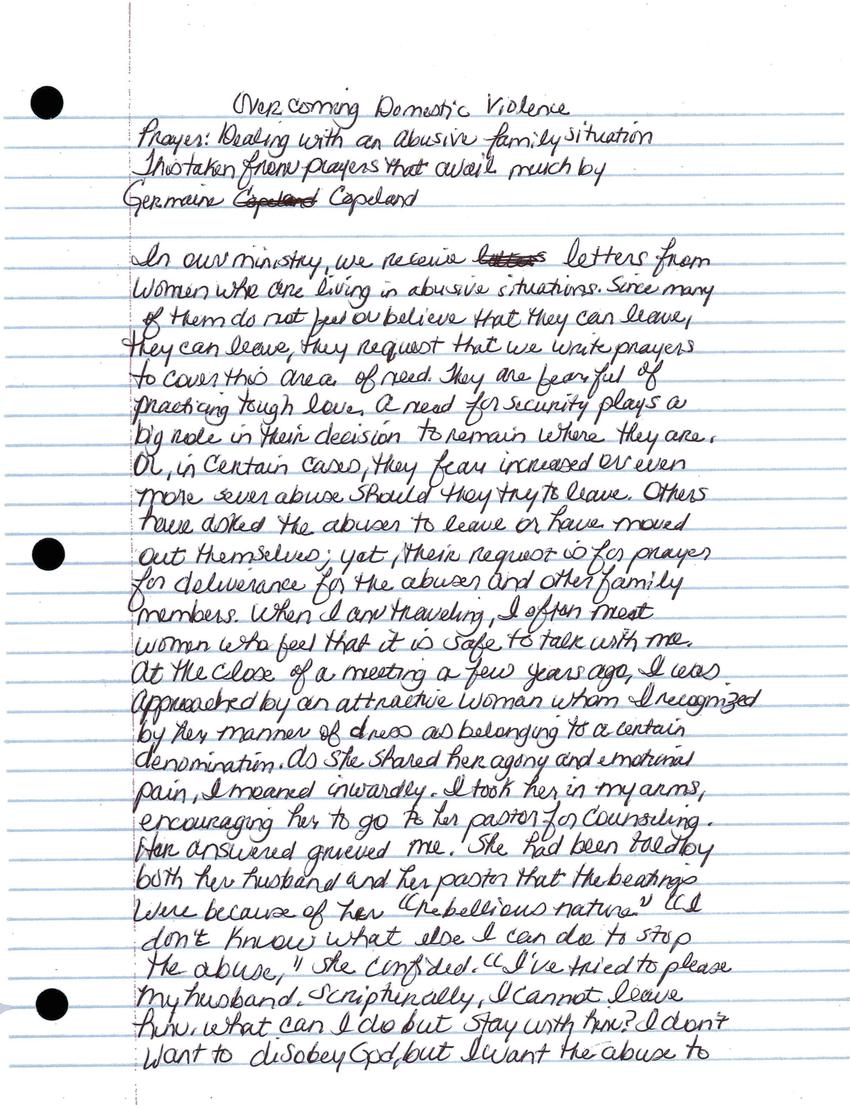 Overcoming Domestic Violence
Prayer: Dealing with an abusive family situation
This taken from prayers that avail much by
Germaine Copeland Copeland
In our ministry, we receive letters letters from
women who are living in abusive situations. Since many
of them do not feel or believe that they can leave,
they can leave, they request that we write prayers
to cover this area of need. They are fearful of
practicing tough love. A need for security plays a
big role in their decision to remain where they are.
Or, in certain cases, they fear increased or even
more sever abuse should they try to leave. Others
have asked the abuser to leave or have moved
out themselves; yet, their request is for prayer
for deliverance for the abuser and other family
members. When I am traveling, I often meet
women who feel that it is safe to talk with me.
At the close of a meeting a few years ago, I was
approached by an attractive woman whom I recognized
by her manner of dress as belonging to a certain
denomination. As she shared her agony and emotional
pain, I moaned inwardly. I took her in my arms,
encouraging her to go to her pastor for counseling.
Her answered grieved me. She had been told by
both her husband and her pastor that the beatings
were because of her "rebellious nature." "I
don't know what else I can do to stop
the abuse," she confided. "I've tried to please
my husband. Scripturally, I cannot leave
him. What can I do but stay with him? I don't
want to disobey God, but I want the abuse to